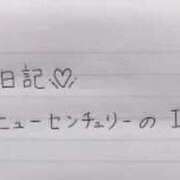 日記♡
ニューセンチュリーの I